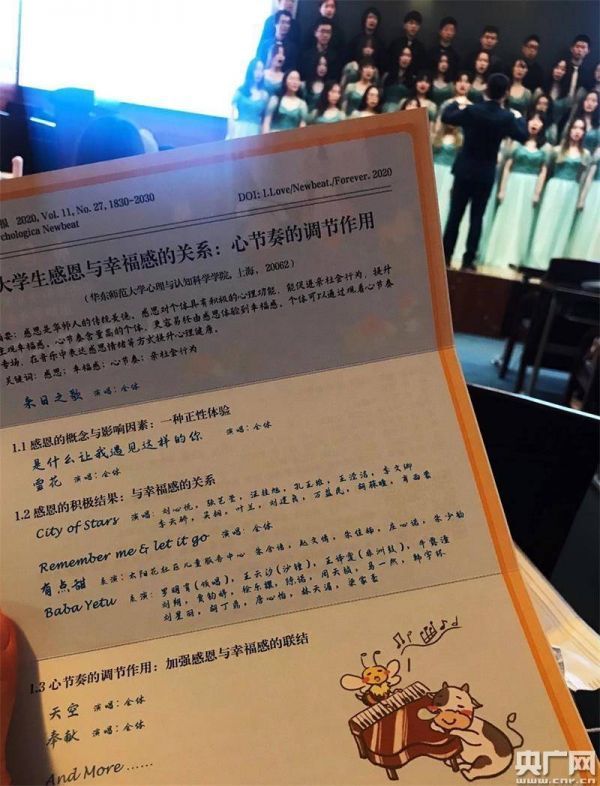 报 2020, Vol. 11, No. 27, 1830-2030
DOI: 1.Love/Newbeat./Forever. 2020
chologica Newbeat
大学生感恩与幸福感的关系：心节奏的调节作用
（华东师范大学心理与认知科学学院，上海，20062）
摘要：感恩是华师人的传统美德，感恩对个体具有积极的心理功能，能促进亲社会行为，提升
主观幸福感。心节奏含量高的个体，更容易经由感恩体验到幸福感，个体可以通过观看心节奏
专场，在音乐中表达感恩情绪等方式提升心理健康。
关键词：感恩；幸福感；心节奏；亲社会行为
来日之歌 演唱：全体
1.1 感恩的概念与影响因素：一种正性体验
是什么让我遇见这样的你 演唱：全体
雪花 演唱：全体
1.2 感恩的积极结果：与幸福感的关系
City of Stars 演唱：刘心悦，张艺莹，汪桂旭，孔王维，王滢洁，李文卿
李天娇，吴桐，叶兰，刘建良，万益民，胡筱曈，肖雨蒙
Remember me & let it go 演唱：全体
有点甜 表演：太阳花社区儿童服务中心 朱合信，赵文倩，朱佳杨，庄心诺，朱少钧
Baba Yetu 表演：罗明宵(领唱)，王云汐(沙锤)，王译萱(非洲鼓)，
刘翙，袁钧婷，徐乐骐，陈诺，周天毓，马一然，韩宇环
刘星丽，胡丁鼎，唐心怡，林天湄，梁家豪
1.3 心节奏的调节作用：加强感恩与幸福感的联结
天空 演唱：全体
奉献 演唱：全体
And More ......
央广网
www.cnr.cn